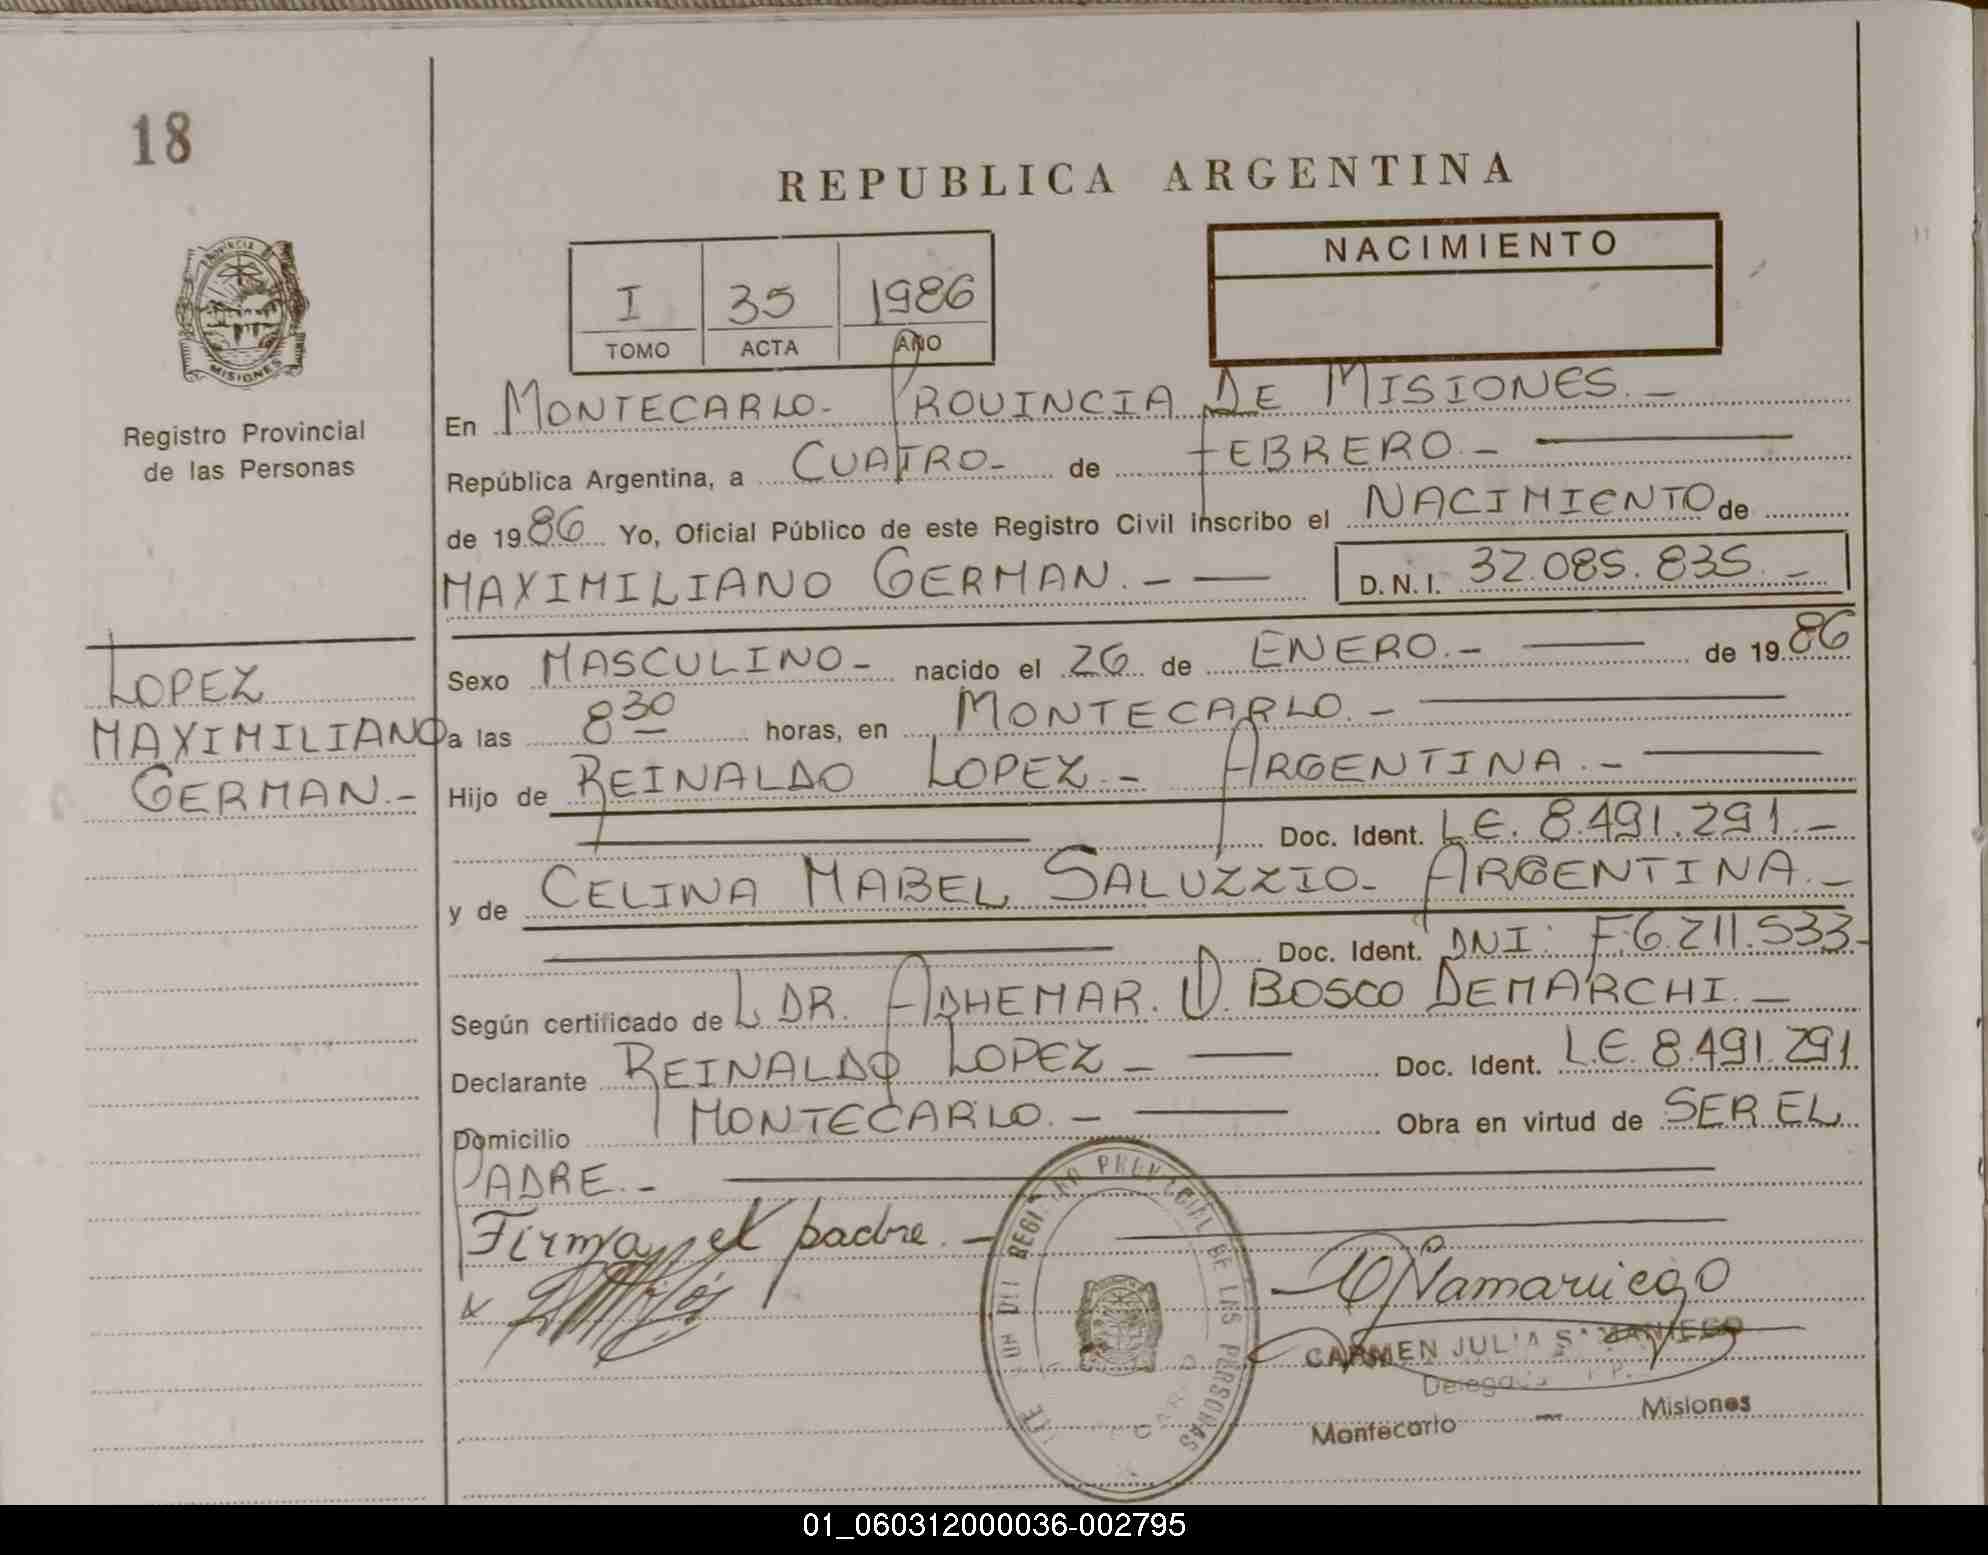 18
REPUBLICA ARGENTINA
PROVINCIA DE
MISIONES
Registro Provincial
de las Personas
I 35 1986
TOMO ACTA AÑO
NACIMIENTO
En MONTECARLO- PROVINCIA DE MISIONES.-
República Argentina, a CUATRO- de FEBRERO.-
de 1986 Yo, Oficial Público de este Registro Civil inscribo el NACIMIENTO de
MAXIMILIANO GERMAN.- D.N.I. 32.085.835.-
LOPEZ
MAXIMILIANO
GERMAN.-
Sexo MASCULINO- nacido el 26 de ENERO.- de 1986
a las 8 30 horas, en MONTECARLO.-
Hijo de REINALDO LOPEZ.- ARGENTINA.-
Doc. Ident. L.E. 8.491.291.-
y de CELINA MABEL SALUZZIO- ARGENTINA.-
Doc. Ident. DNI: F.6.211.533-
Según certificado de L DR. ADHEMAR. D. BOSCO DEMARCHI.-
Declarante REINALDO LOPEZ- Doc. Ident. L.E. 8.491.291
Domicilio MONTECARLO.- Obra en virtud de SER EL
PADRE.-
Firma el padre.-
REGISTRO PROVINCIAL DE LAS PERSONAS
CARMEN JULIA SAMANIEGO
Montecarlo - Misiones
01_060312000036-002795